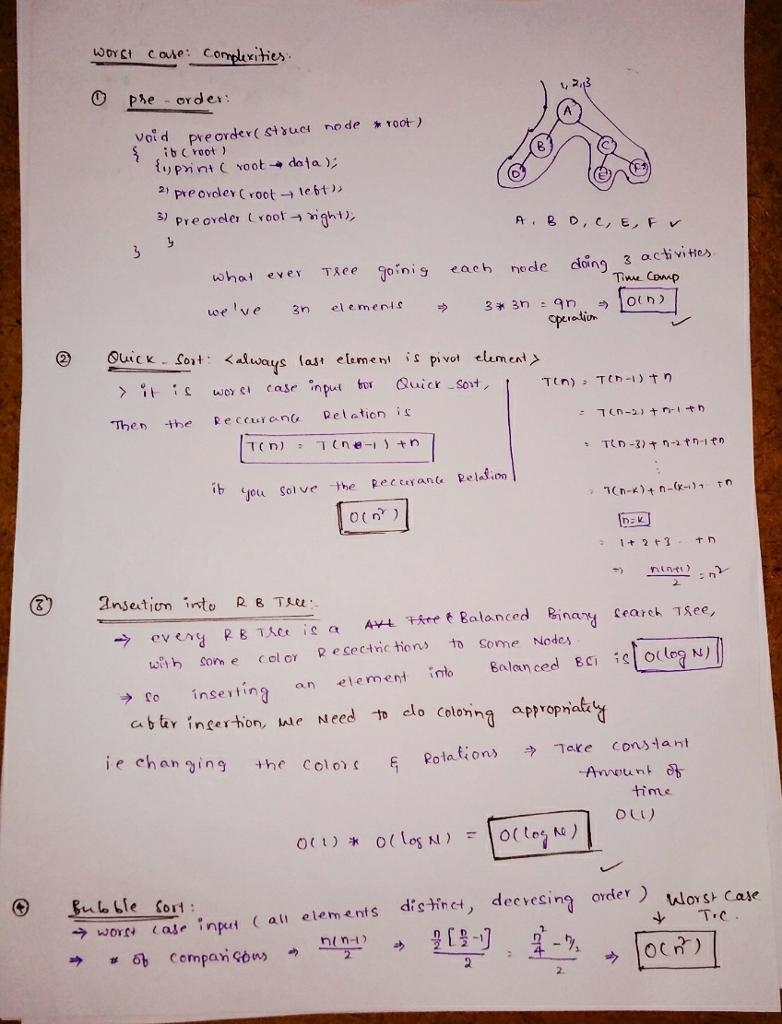 Worst case: Complexities:
① pre-order:
void preorder(struct node *root)
{ if(root)
{1) print( root→data);
2) preorder(root→left);
3) preorder(root→right);
}
}
1,2,3
A
B
C
D
E
F
A, B D, C, E, F ✓
what ever Tree goinig each node doing 3 activities
we've 3n elements ⇒ 3*3n = 9n operation ⇒ Time Comp O(n) ✓
② Quick-Sort: <always last element is pivot element>
> it is worst case input for Quick-sort,
Then the Reccurance Relation is
T(n) = T(n-1)+n
if you solve the Reccurance Relation
O(n²)
T(n) = T(n-1)+n
= T(n-2)+n-1+n
= T(n-3)+n-2+n-1+n
⋮
= T(n-k)+n-(k-1)+ +n
n=k
= 1+2+3 .. +n
⇒ n(n+1)/2 = n²
③ Insertion into RB Tree:
→ every RB Tree is a AVL Tree & Balanced Binary Search Tree,
with some color Resectrictions to some Nodes.
→ so inserting an element into Balanced BST is O(log N)
after insertion, we Need to do coloring appropriately
ie changing the colors & Rotations ⇒ Take constant
Amount of
time
O(1)
O(1) * O(log N) = O(log N) ✓
④ Bubble Sort:
→ worst case input (all elements distinct, decresing order)
⇒ # of comparisons ⇒ n(n-1)/2 ⇒ n/2[n/2-1]/2 = n²/4 - n/2 /2 ⇒ O(n²)
Worst Case
↓ T.C.